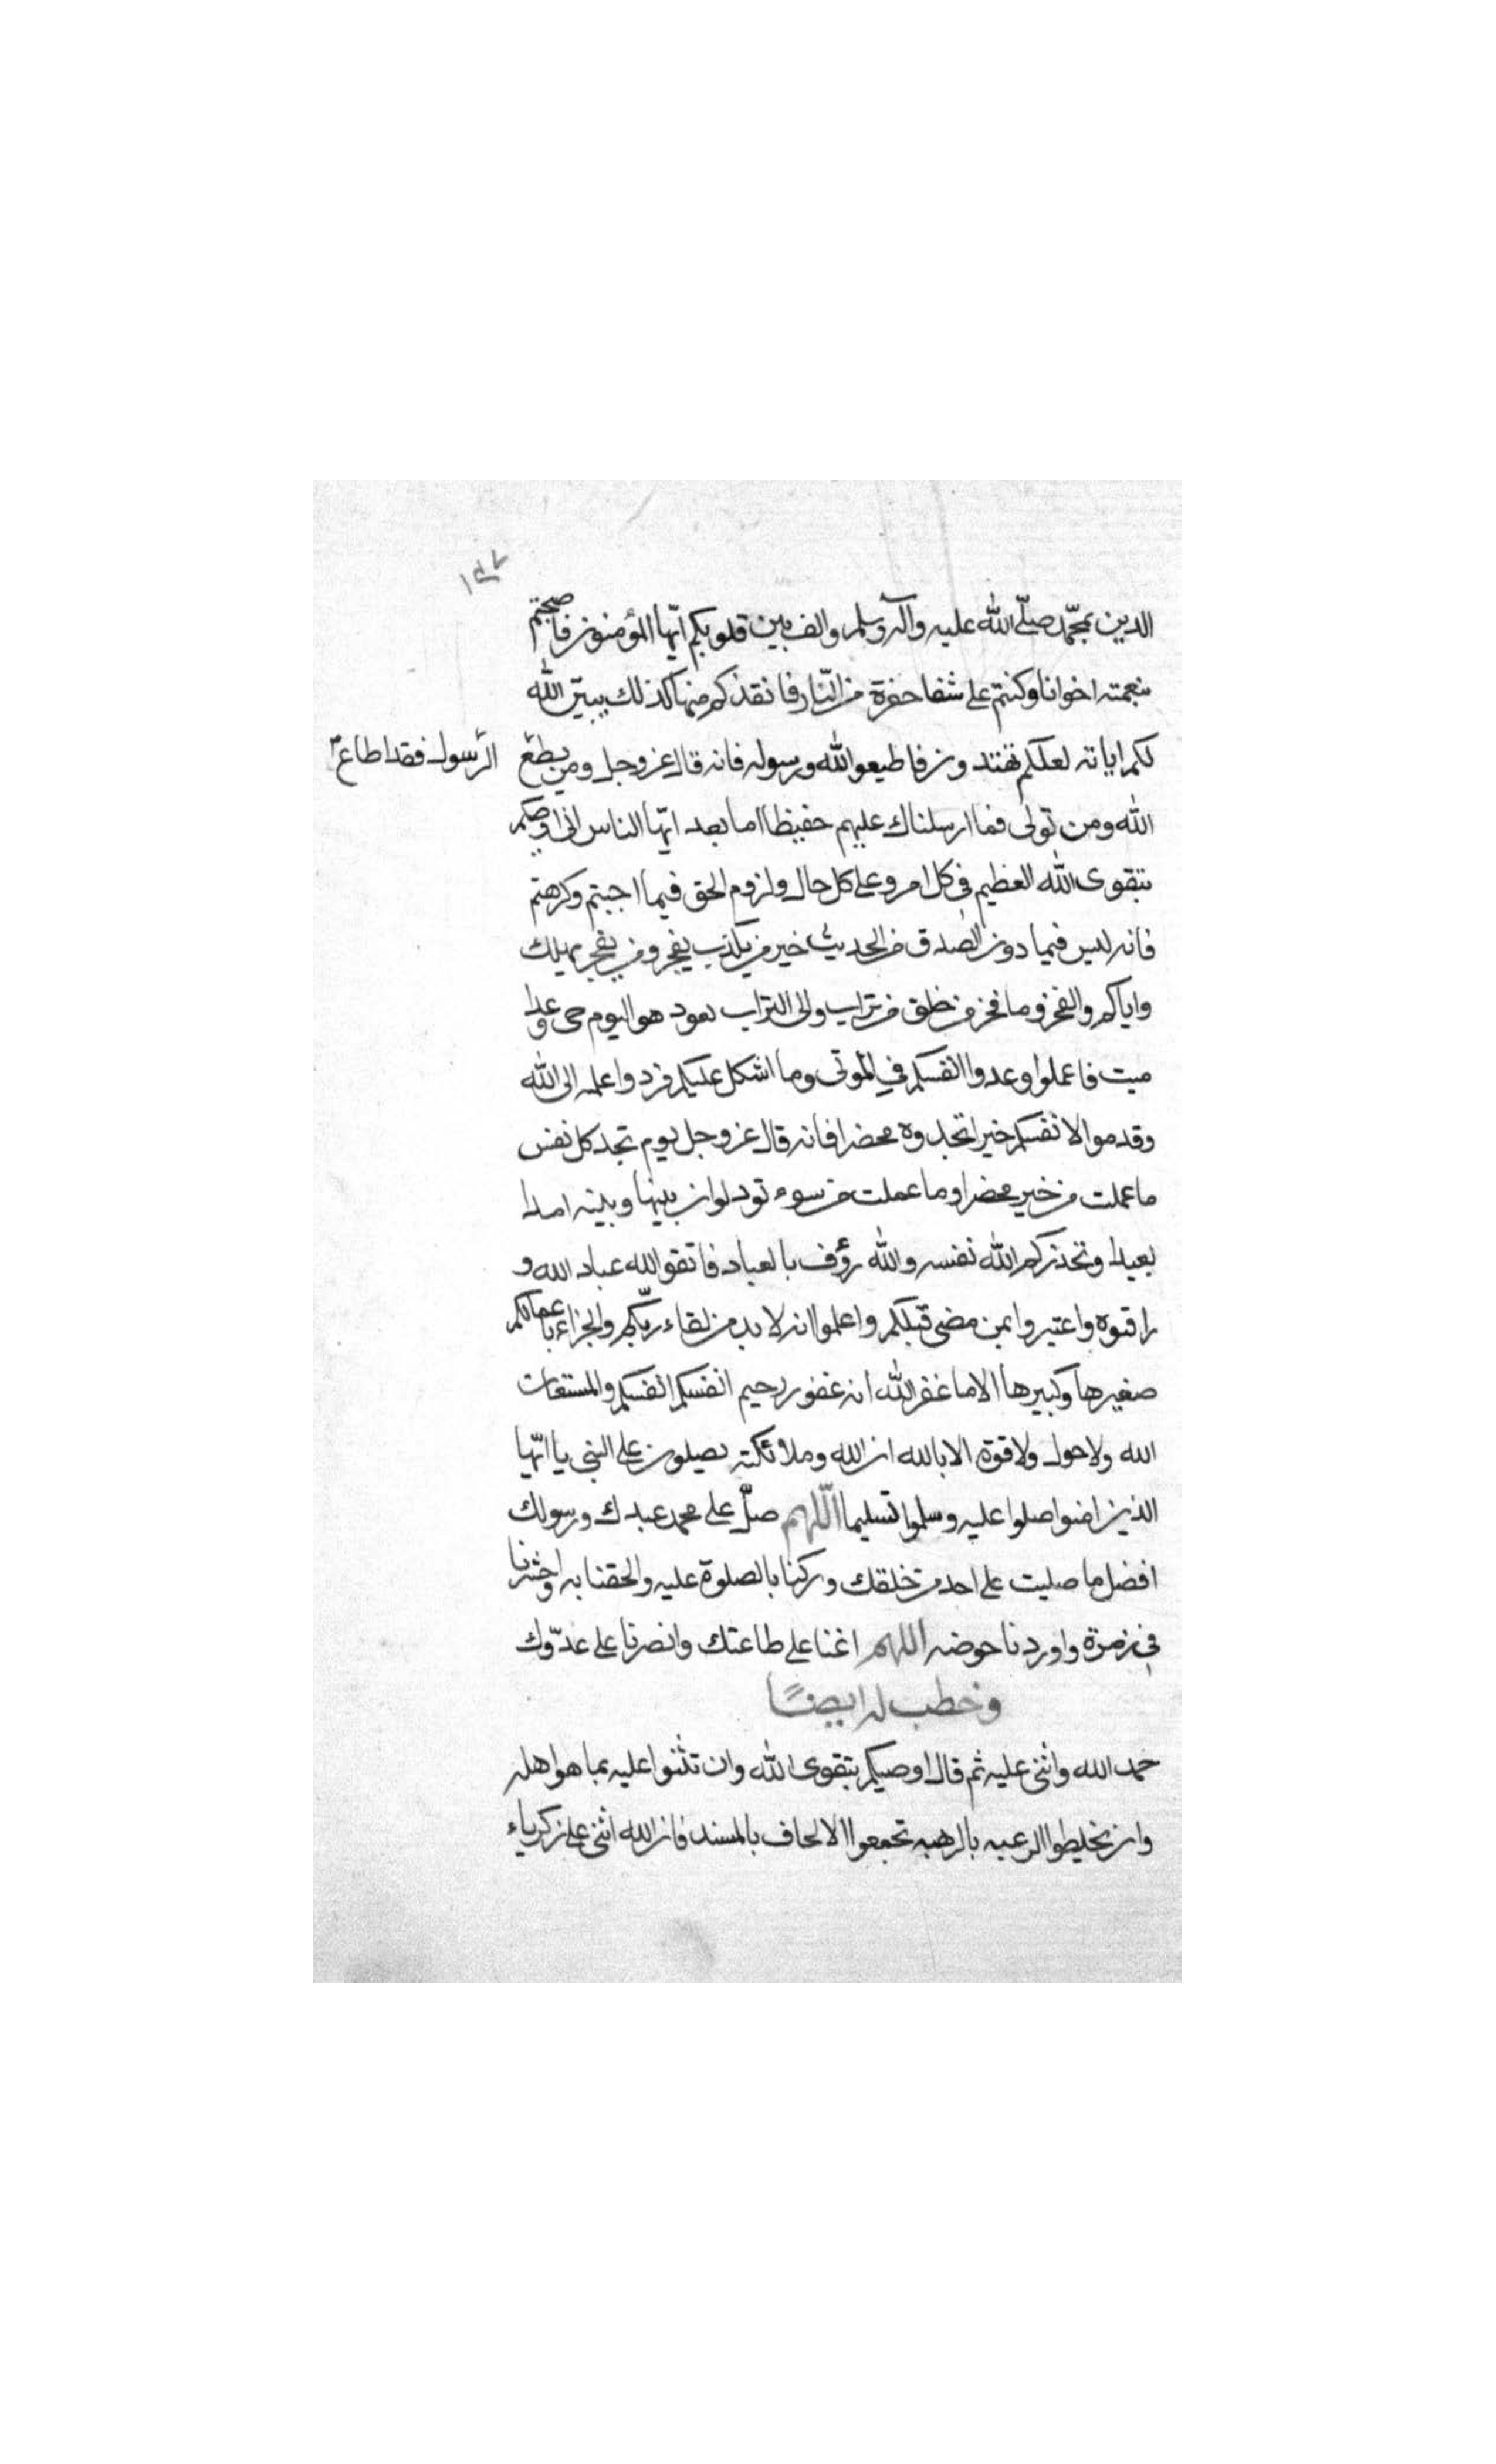 ١٤٧
الدين بمحمّد صلّے الله عليه وآله وسلم والف بين قلوبكم ايّها المؤمنون فاصبحتم
بنعمته اخوانا وكنتم على شفا حفرة من النّار فانقذكم منها كذلك يبيّن الله
لكم اياته لعلكم تهتدون فاطيعوا الله ورسوله فانه قال عز وجل ومن يطع الرسول فقد اطاع
الله ومن تولى فما ارسلناك عليهم حفيظا اما بعد ايّها الناس انى اوصيكم
بتقوى الله العظيم فى كل امر وعلى كل حال ولزوم الحق فيما احببتم وكرهتم
فانه ليس فيما دون الصدق من الحديث خير من يكذب يفجر ومن يفجر يهلك
واياكم والفخر وما فخر من خلق من تراب والى التراب يعود هو اليوم حى وغدا
ميت فاعملوا وعدوا انفسكم فى الموتى وما اشكل عليكم فردوا علمه الى الله
وقدموا لانفسكم خيرا تجدوه محضرا فانه قال عز وجل يوم تجد كل نفس
ما عملت من خير محضرا وما عملت من سوء تود لو ان بينها وبينه امدا
بعيدا وتحذركم الله نفسه والله رؤف بالعباد فاتقوا الله عباد الله و
راقبوه واعتبروا بمن مضى قبلكم واعلموا انه لا بد من لقاء ربّكم والجزاء باعمالكم
صغيرها وكبيرها الا ما غفر الله انه غفور رحيم انفسكم انفسكم والمستعان
الله ولا حول ولا قوة الا بالله ان الله وملائكته يصلون على النبى يا ايّها
الذين امنوا صلوا عليه وسلموا تسليما اللّهم صلّ على محمد عبدك ورسولك
افضل ما صليت على احد من خلقك وزكنا بالصلوة عليه والحقنا به واحشرنا
فى زمرة واوردنا حوضه اللهم اعنا على طاعتك وانصرنا على عدوّك
وخطب له ايضًا
حمد الله واثنى عليه ثم قال اوصيكم بتقوى الله وان تثنوا عليه بما هو اهله
وان تخلطوا الرغبه بالرهبه تجمعوا الالحاف بالمسند فان الله اثنى على زكرياء